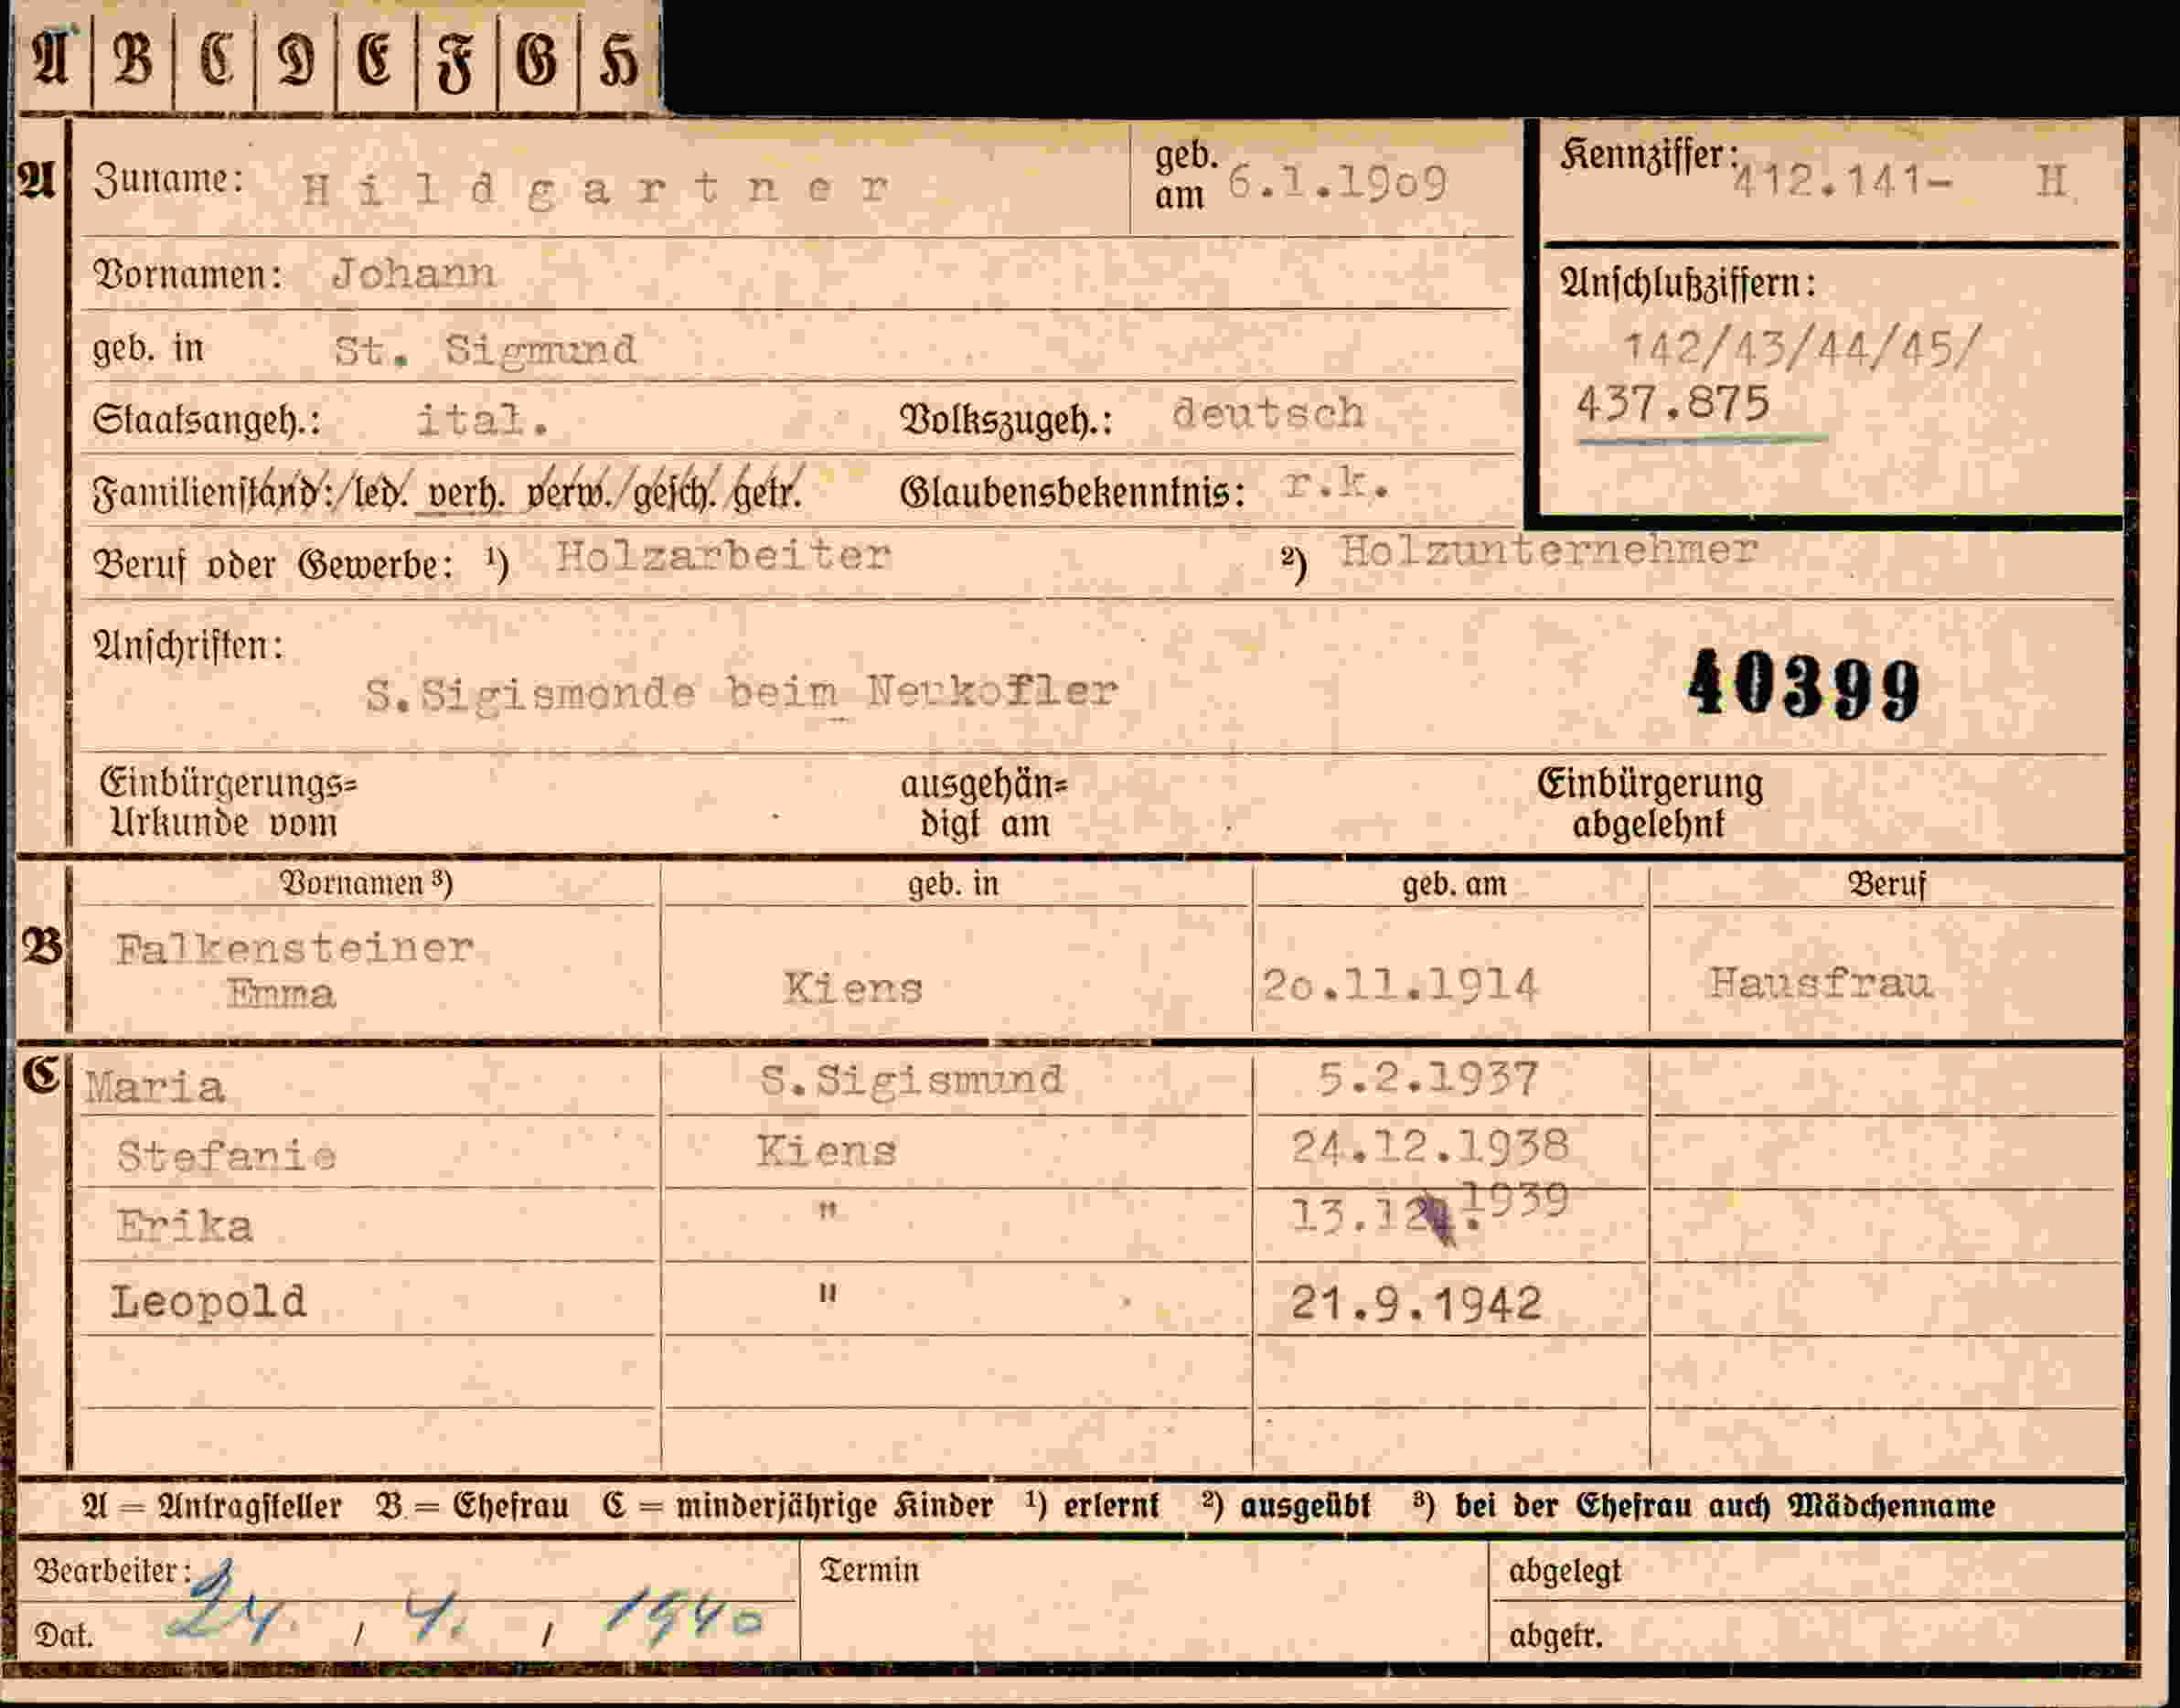 A B C D E F G H
A Zuname: Hildgartner geb. am 6.1.1909 Kennziffer: 412.141- H
Vornamen: Johann
Anschlußziffern:
geb. in St. Sigmund
142/43/44/45/
Staatsangeh.: ital. Volkszugeh.: deutsch
437.875
Familienstand: led. verh. verw. gesch. getr. Glaubensbekenntnis: r.k.
Beruf oder Gewerbe: 1) Holzarbeiter 2) Holzunternehmer
Anschriften:
S.Sigismonde beim 40399
Einbürgerungs= ausgehän= Einbürgerung
Urkunde vom digt am abgelehnt
Vornamen 3) geb. in geb. am Beruf
B Falkensteiner
Emma Kiens 20.11.1914 Hausfrau
C Maria S.Sigismund 5.2.1937
Stefanie Kiens 24.12.1938
Erika " 13.12.1939
Leopold " 21.9.1942
A = Antragsteller B = Ehefrau C = minderjährige Kinder 1) erlernt 2) ausgeübt 3) bei der Ehefrau auch Mädchenname
Bearbeiter: Termin abgelegt
Dat. 24. / 4. / 1940 abgetr.